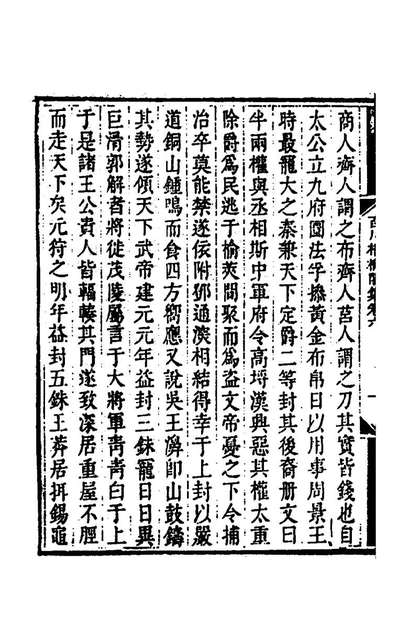 商人齊人謂之布齊人莒人謂之刀其實皆錢也自
太公立九府圜法孚摻黃金布帛日以用事周景王
時最寵大之秦兼天下定爵二等封其後裔册文曰
半兩權與丞相斯中軍府令高埒漢興惡其權太重
除爵爲民逃于榆莢間聚而爲盗文帝憂之下令捕
治卒莫能禁遂依附鄧通淡相結得幸于上封以嚴
道銅山鐘鳴而食四方嚮應又說吳王濞卽山鼓鑄
其勢遂傾天下武帝建元元年益封三銖寵日日異
巨滑郭解者將徙茂陵屬言于大將軍靑靑白于上
于是諸王公貴人皆輻輳其門遂致深居重屋不脛
而走天下矣元狩之明年益封五銖王莽居摂錫龜